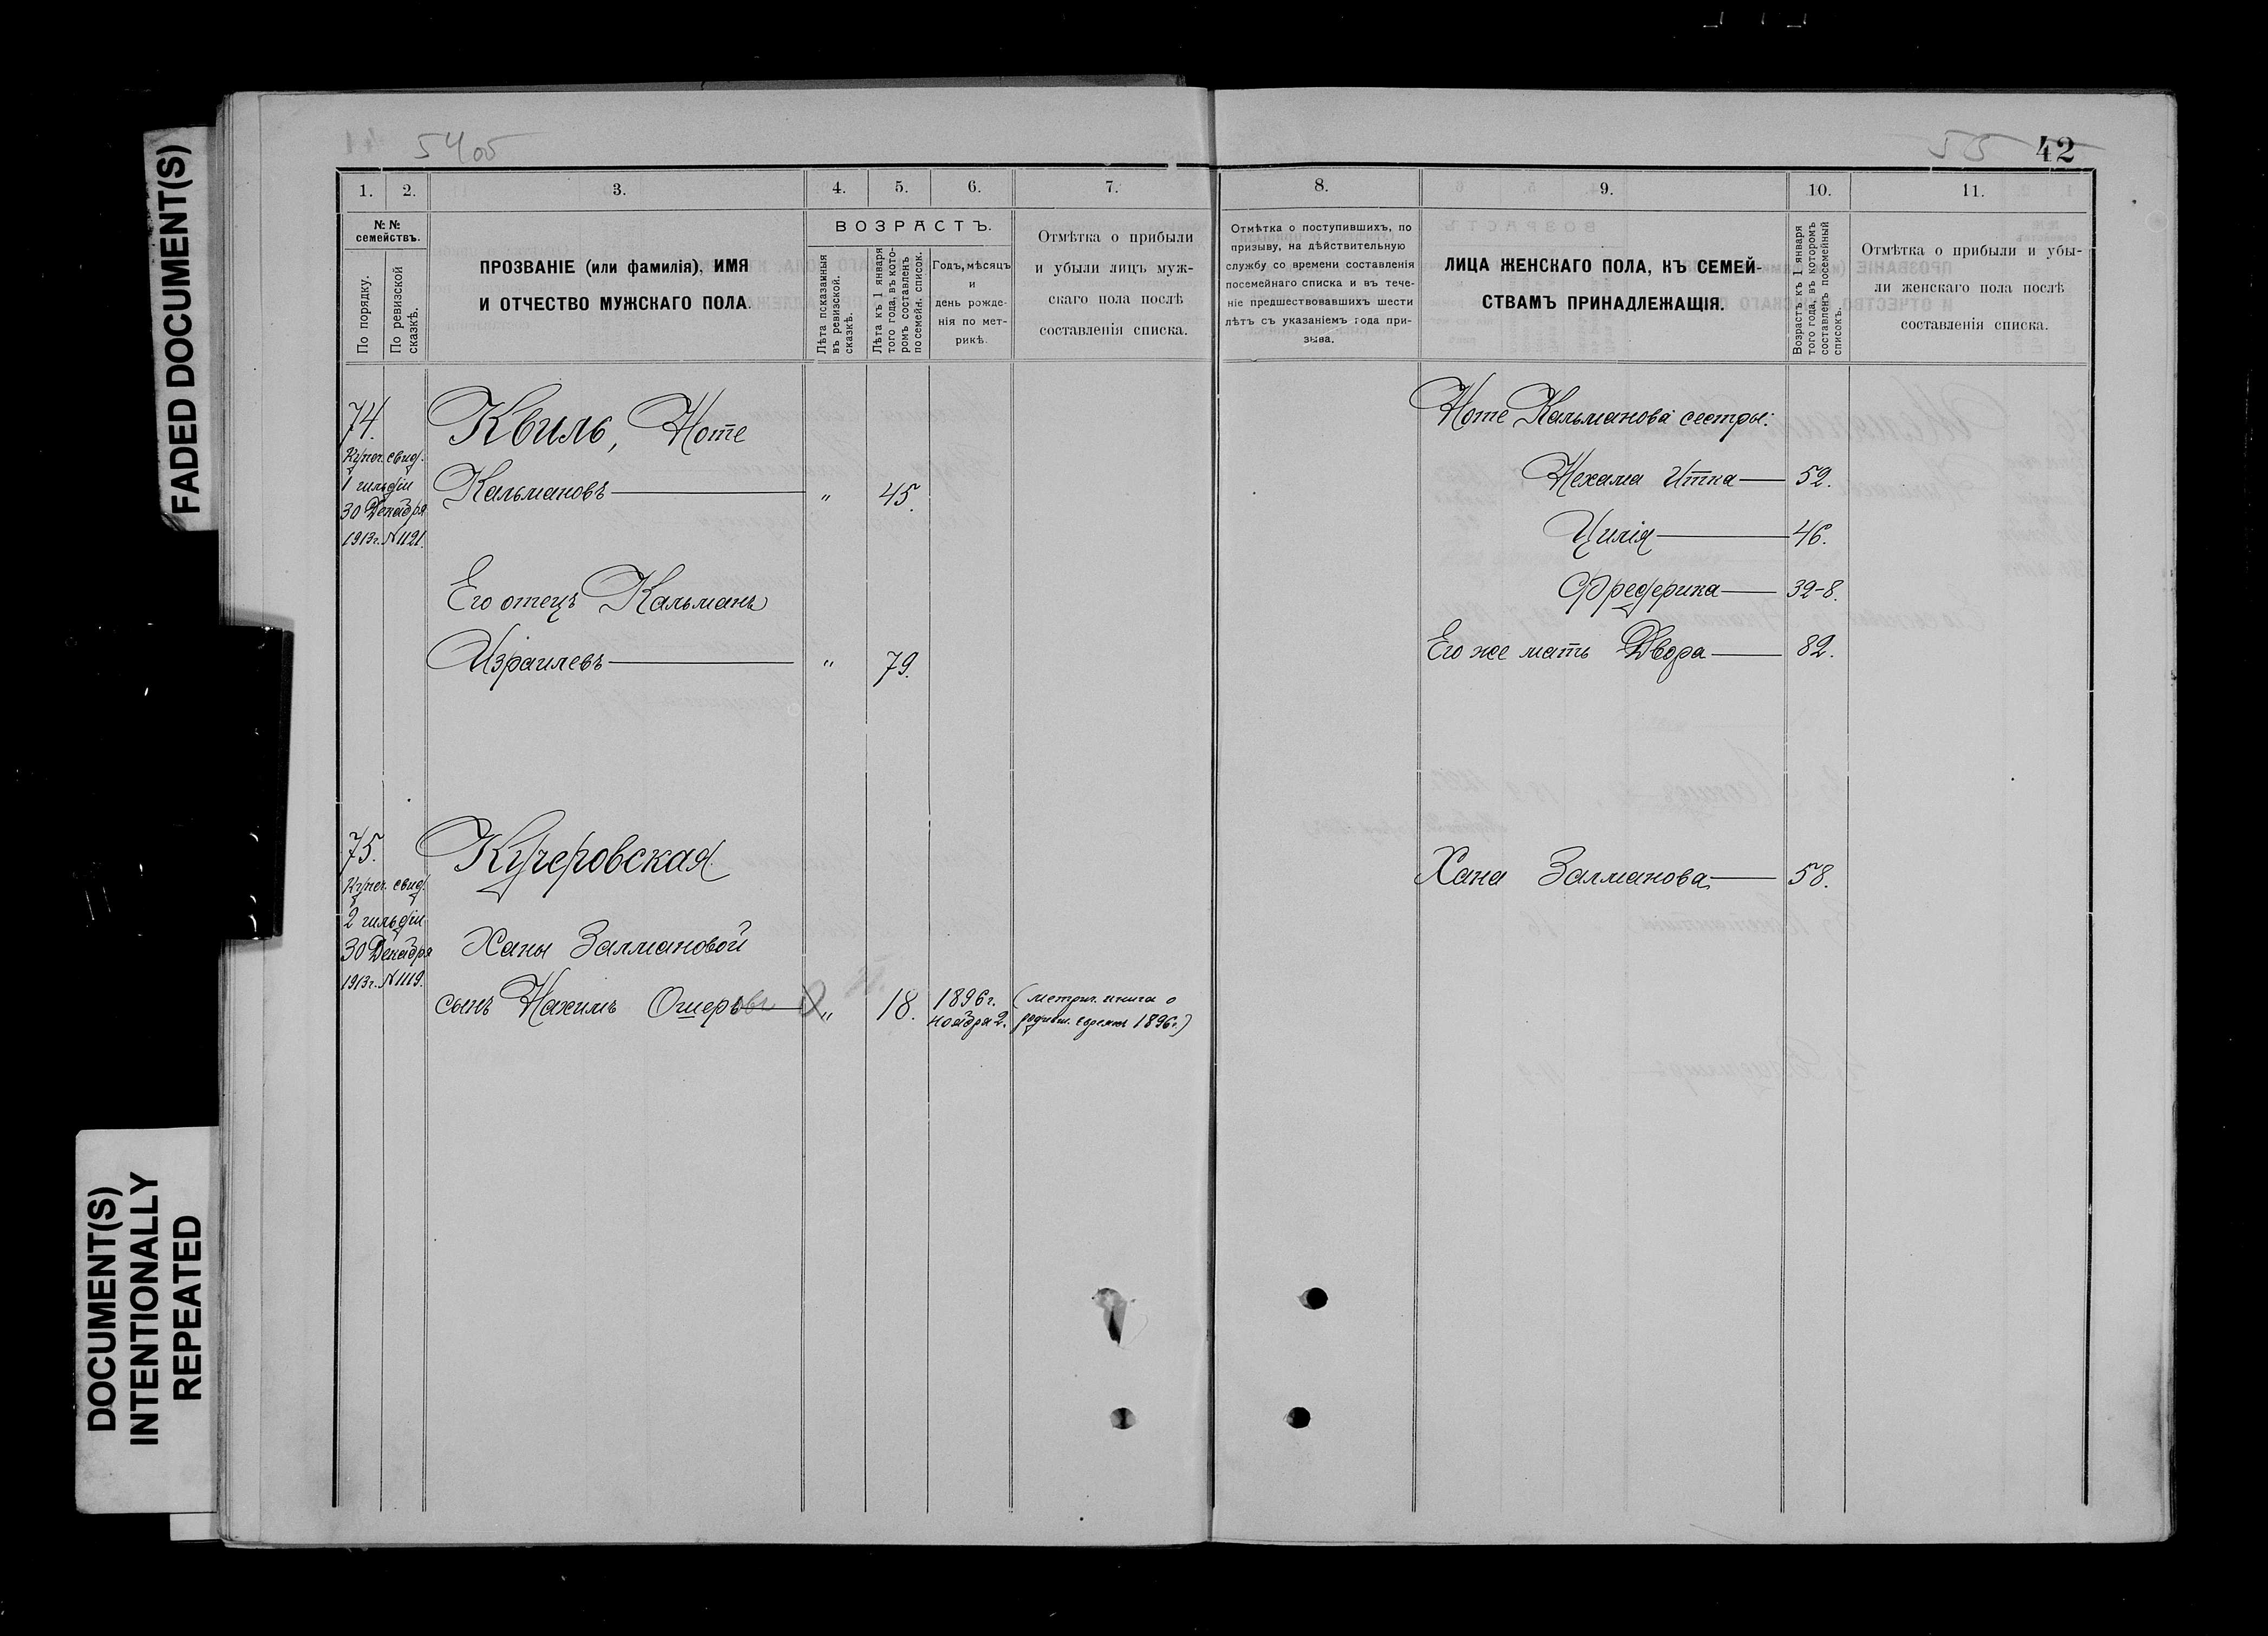 FADED DOCUMENT(S)
DOCUMENT(S)
INTENTIONALLY
REPEATED
5405
55
42
1. 2. 3. 4. 5. 6. 7. 8. 9. 10. 11.
№№ семействъ.
По порядку.
По ревизской сказкѣ.
ПРОЗВАНІЕ (или фамилія), ИМЯ
И ОТЧЕСТВО МУЖСКАГО ПОЛА.
ВОЗРАСТЪ.
Лѣта показанныя
въ ревизской
сказкѣ.
Лѣта къ 1 января
того года, въ кото-
ромъ составленъ
посемейн. список.
Годъ, мѣсяцъ
и
день рожде-
нія по мет-
рикѣ.
Отмѣтка о прибыли
и убыли лицъ муж-
скаго пола послѣ
составленія списка.
Отмѣтка о поступившихъ, по
призыву, на дѣйствительную
службу со времени составленія
посемейнаго списка и въ тече-
ніе предшествовавшихъ шести
лѣтъ съ указаніемъ года при-
зыва.
ЛИЦА ЖЕНСКАГО ПОЛА, КЪ СЕМЕЙ-
СТВАМЪ ПРИНАДЛЕЖАЩІЯ.
Возрастъ къ 1 января
того года, въ которомъ
составленъ посемейный
списокъ.
Отмѣтка о прибыли и убы-
ли женскаго пола послѣ
составленія списка.
74.
Купеч. свид.
1 гильдіи
30 Декабря
1913г. N1121.
Квиль, Ноте
Кальмановъ — " 45.
Его отецъ Кальманъ
Израилевъ — " 79.
Ноте Кальманова сестры:
Нехама Итка — 52.
Цилія — 46.
Фредерика — 32-8.
Его же мать Двора — 82.
75.
Купеч. свид.
2 гильдіи
30 Декабря
1913г. N1119.
Кучеровская
Ханы Залмановой
сынъ Нахимъ Ошеровъ — " 18. 1896г. (метрич. книга о
ноября 2. родивш. евреяхъ 1896г.)
Хана Залманова — 58.